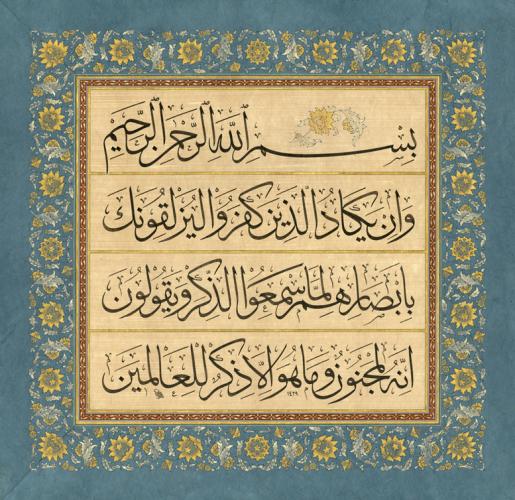 بِسْمِ اللهِ الرَّحْمٰنِ الرَّحِيمِ
وَاِنْ يَكَادُ الَّذِينَ كَفَرُوا لَيُزْلِقُونَكَ
بِاَبْصَارِهِمْ لَمَّا سَمِعُوا الذِّكْرَ وَيَقُولُونَ
اِنَّهُ لَمَجْنُونٌ وَمَا هُوَ اِلَّا ذِكْرٌ لِلْعَالَمِينَ